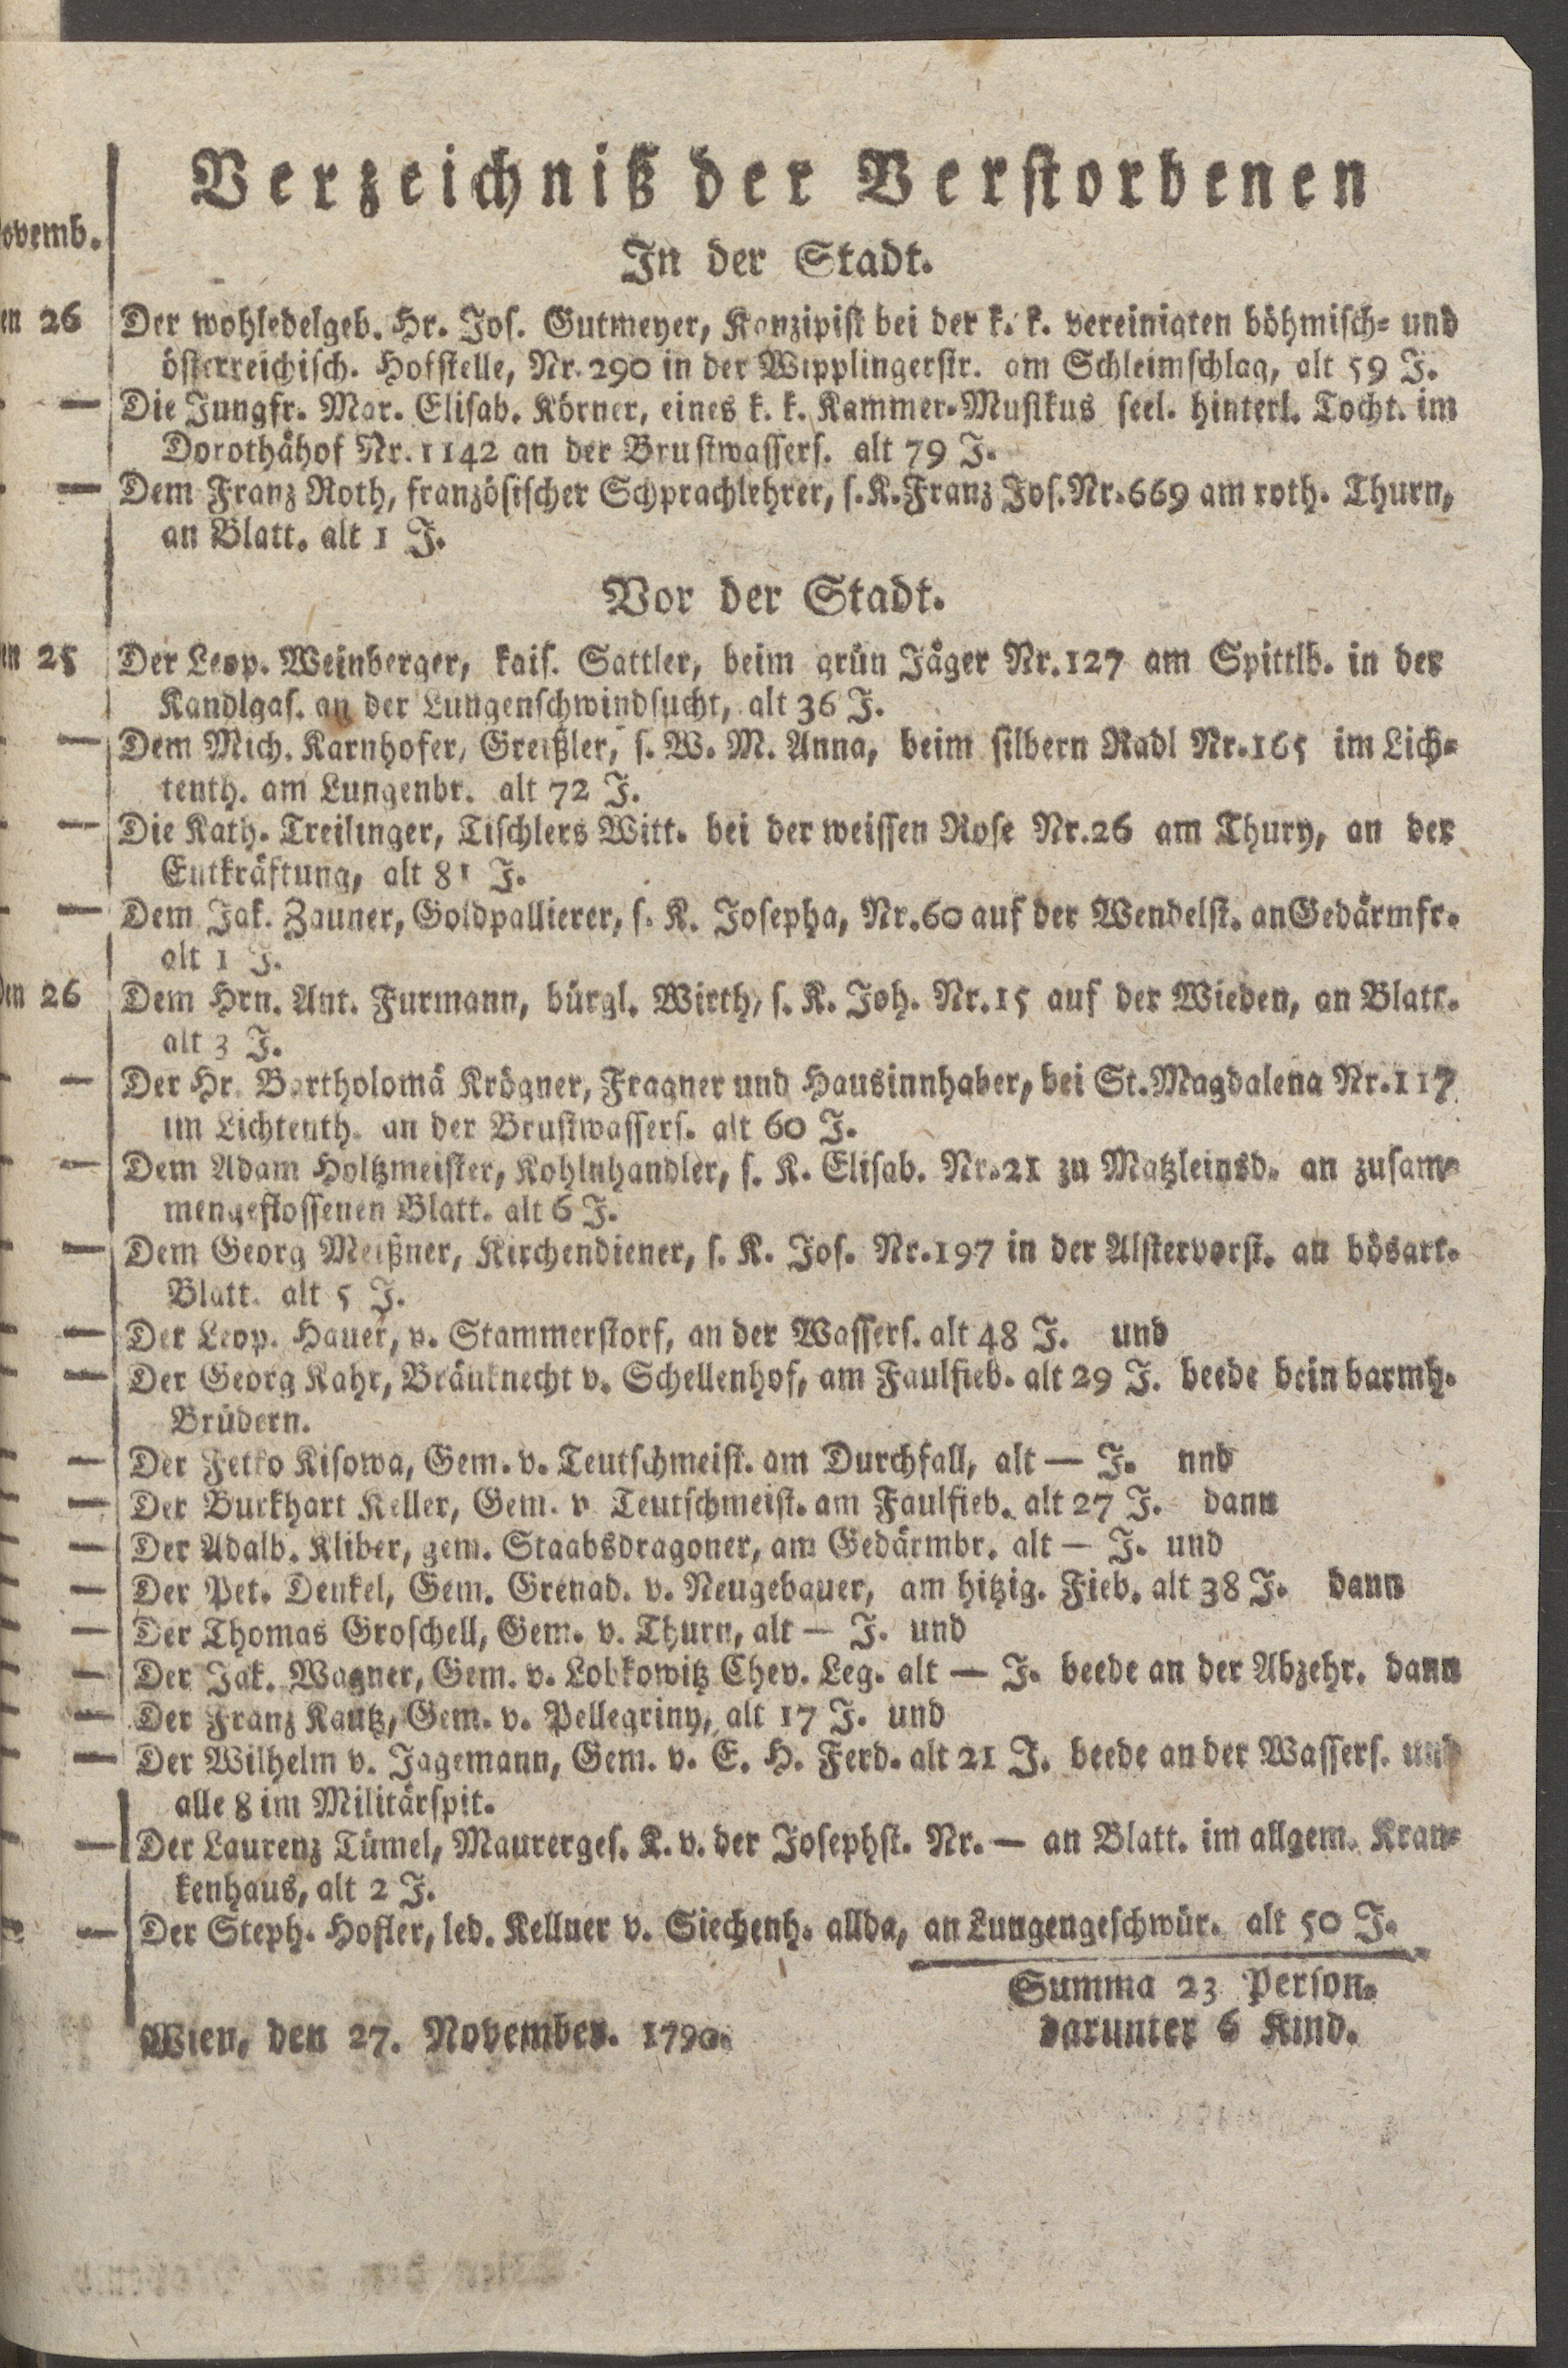 Verzeichniß der Verstorbenen
ovemb.
In der Stadt.
en 26 Der wohledelgeb. Hr. Jos. Gutmeyer, Konzipist bei der k. k. vereinigten böhmisch= und
österreichisch. Hofstelle, Nr. 290 in der Wipplingerstr. am Schleimschlag, alt 59 J.
— Die Jungfr. Mar. Elisab. Körner, eines k. k. Kammer=Musikus seel. hinterl. Tocht. im
Dorothähof Nr. 1142 an der Brustwassers. alt 79 J.
— Dem Franz Roth, französischer Schprachlehrer, s. K. Franz Jos. Nr. 669 am roth. Thurn,
an Blatt. alt 1 J.
Vor der Stadt.
en 25 Der Leop. Weinberger, kais. Sattler, beim grün Jäger Nr. 127 am Spittlb. in der
Kandlgas. an der Lungenschwindsucht, alt 36 J.
— Dem Mich. Karnhofer, Greißler, s. W. M. Anna, beim silbern Radl Nr. 165 im Lich=
tenth. am Lungenbr. alt 72 J.
— Die Kath. Treilinger, Tischlers Witt. bei der weissen Rose Nr. 26 am Thury, an der
Entkräftung, alt 81 J.
— Dem Jak. Zauner, Goldpallierer, s. K. Josepha, Nr. 60 auf der Wendelst. an Gedärmfr.
alt 1 J.
den 26 Dem Hrn. Ant. Furmann, bürgl. Wirth, s. K. Joh. Nr. 15 auf der Wieden, an Blatt.
alt 3 J.
— Der Hr. Bartholomä Krögner, Fragner und Hausinnhaber, bei St. Magdalena Nr. 117
im Lichtenth. an der Brustwassers. alt 60 J.
— Dem Adam Holtzmeister, Kohlnhandler, s. K. Elisab. Nr. 21 zu Matzleinsd. an zusam=
mengeflossenen Blatt. alt 6 J.
— Dem Georg Meißner, Kirchendiener, s. K. Jos. Nr. 197 in der Alstervorst. an bösart.
Blatt. alt 5 J.
— Der Leop. Hauer, v. Stammerstorf, an der Wassers. alt 48 J. und
— Der Georg Kahr, Bräuknecht v. Schellenhof, am Faulfieb. alt 29 J. beede bein barmh.
Brüdern.
— Der Fetko Kisowa, Gem. v. Teutschmeist. am Durchfall, alt — J. nnd
— Der Burkhart Keller, Gem. v Teutschmeist. am Faulfieb. alt 27 J. dann
— Der Adalb. Kliber, gem. Staabsdragoner, am Gedärmbr. alt — J. und
— Der Pet. Denkel, Gem. Grenad. v. Neugebauer, am hitzig. Fieb. alt 38 J. dann
— Der Thomas Groschell, Gem. v. Thurn, alt — J. und
— Der Jak. Wagner, Gem. v. Lobkowitz Chev. Leg. alt — J. beede an der Abzehr. dann
— Der Franz Kautz, Gem. v. Pellegriny, alt 17 J. und
— Der Wilhelm v. Jagemann, Gem. v. E. H. Ferd. alt 21 J. beede an der Wassers. und
alle 8 im Militärspit.
— Der Laurenz Tümel, Maurerges. K. v. der Josephst. Nr. — an Blatt. im allgem. Kran=
kenhaus, alt 2 J.
— Der Steph. Hofler, led. Kellner v. Siechenh. allda, an Lungengeschwür. alt 50 J.
Summa 23 Person.
darunter 6 Kind.
Wien, den 27. November. 1790.